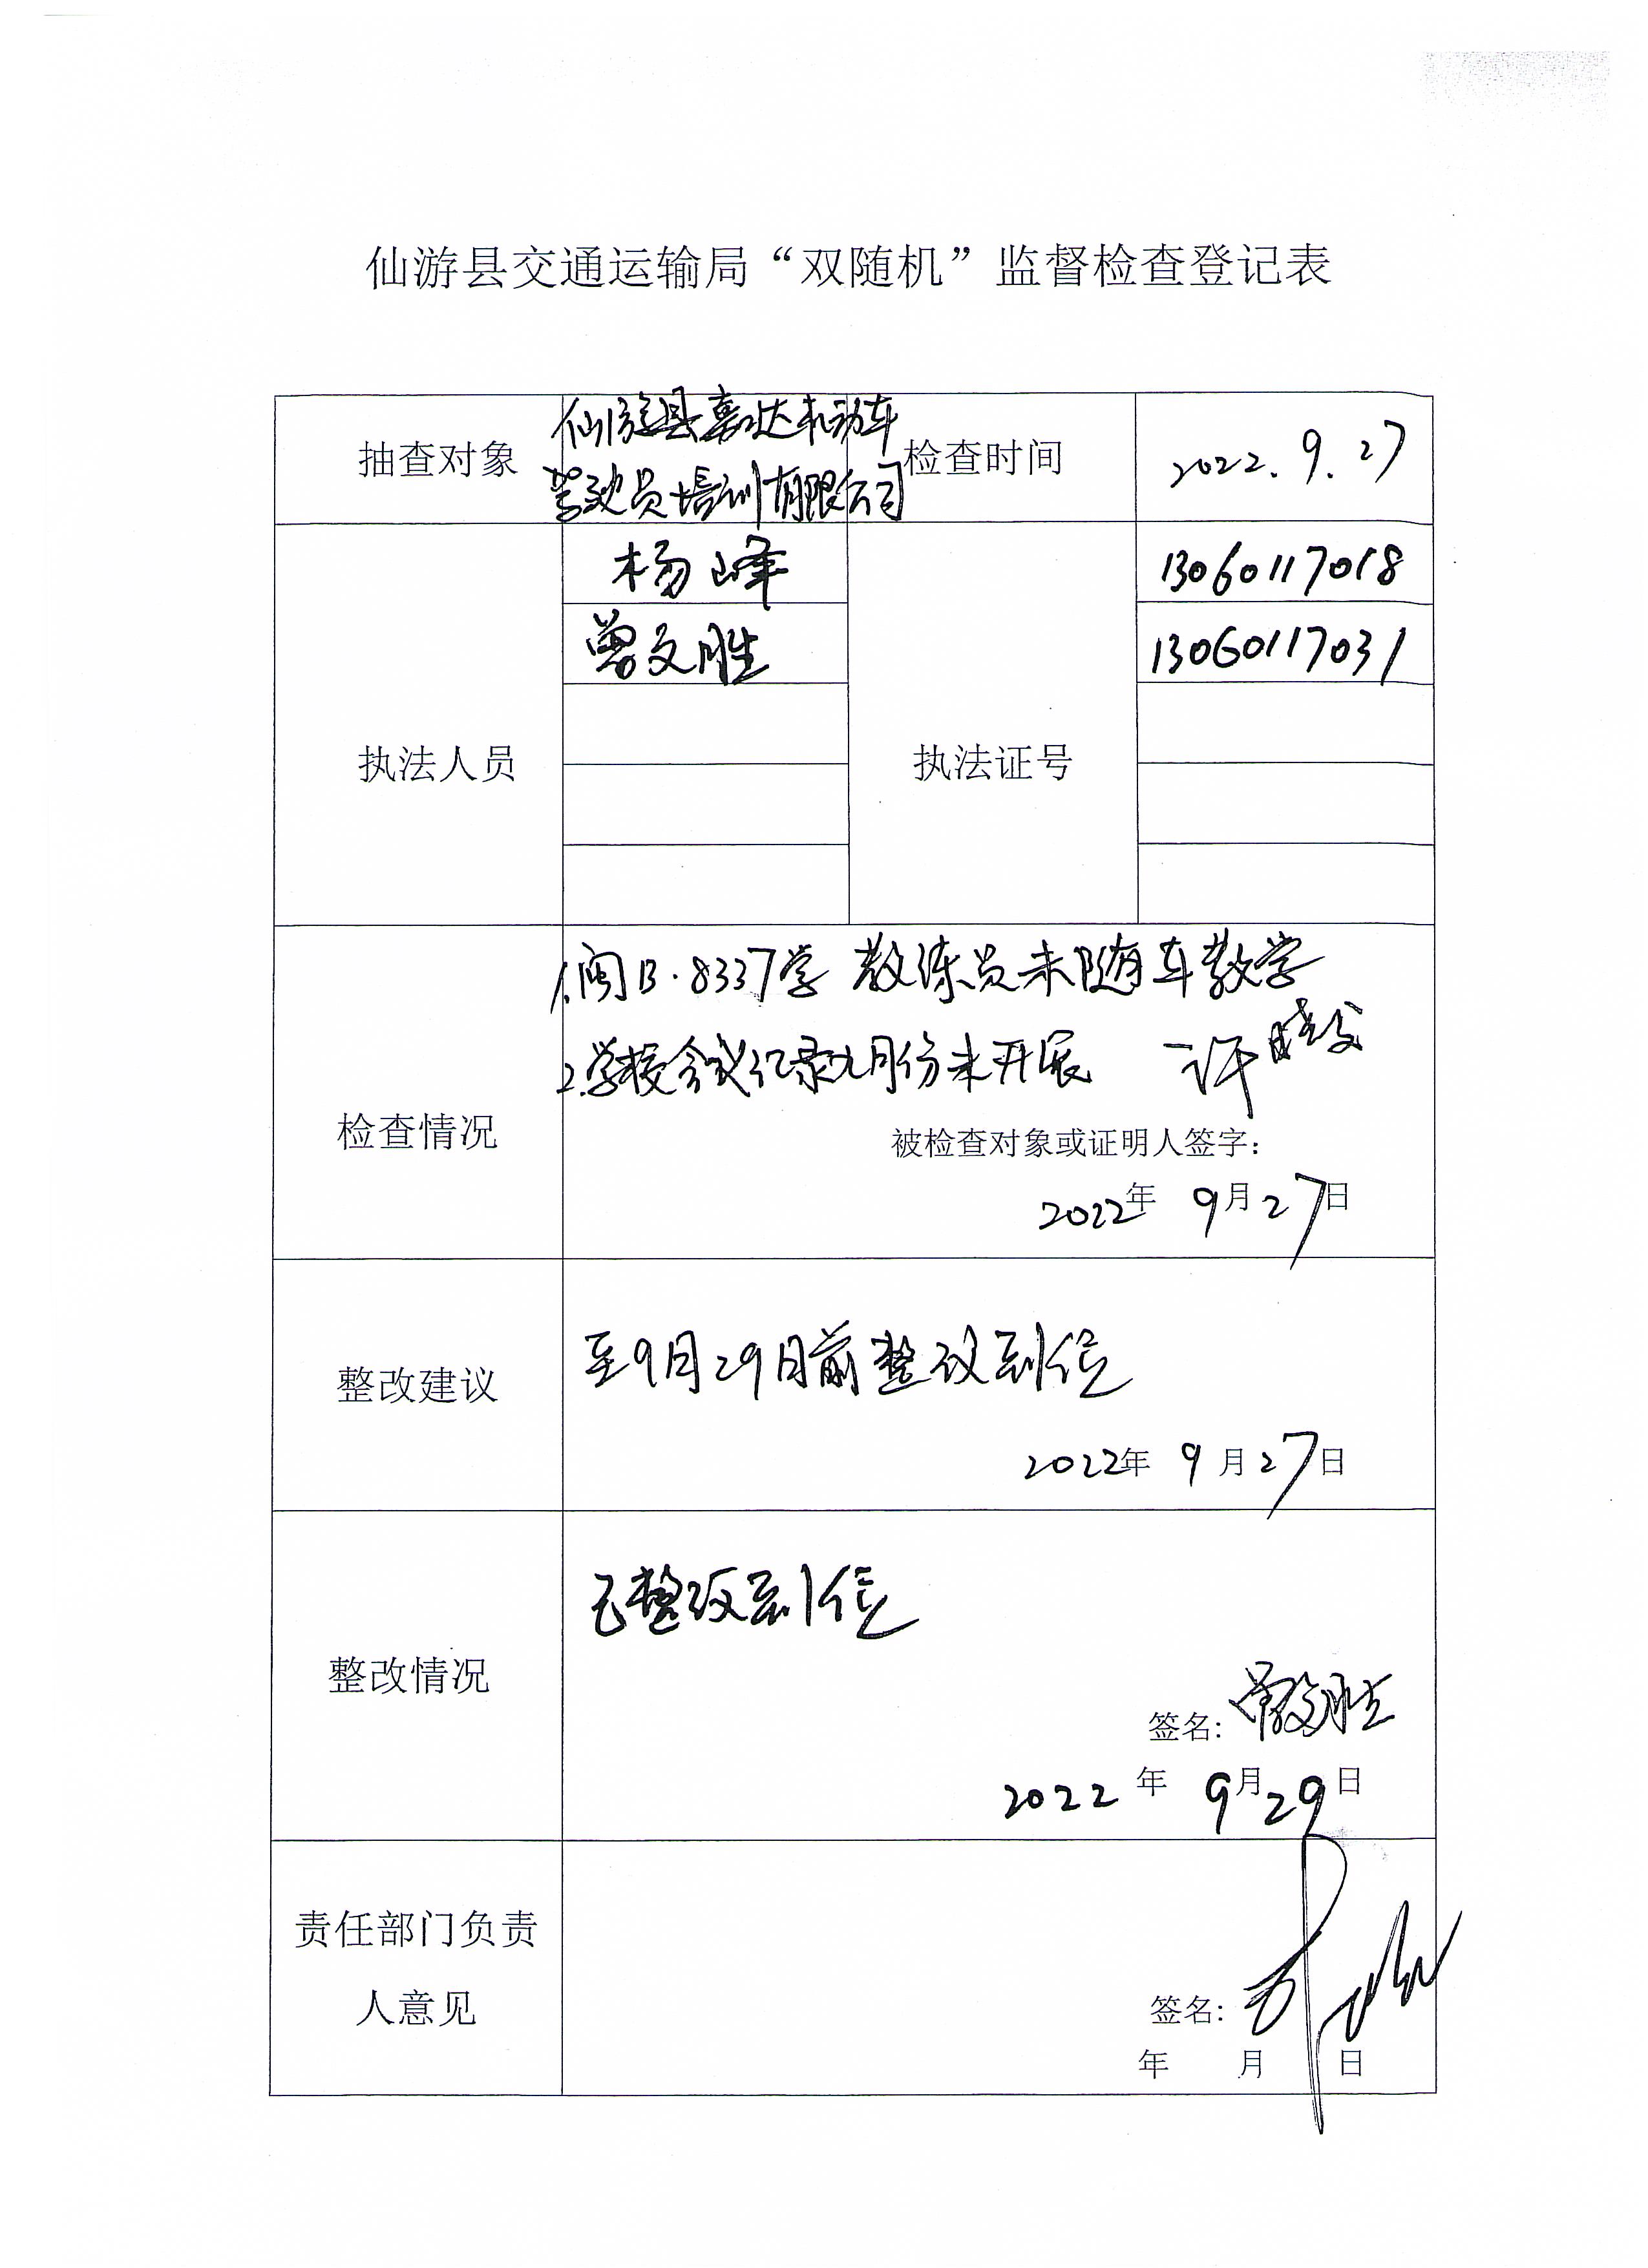 仙游县交通运输局“双随机”监督检查登记表
抽查对象
仙游县嘉达机动车
驾驶员培训有限公司
检查时间
2022.9.27
执法人员
杨峰
曾文胜
执法证号
13060117018
13060117031
检查情况
1.闽B·8337学 教练员未随车教学
2.学校会议记录九月份未开展
许晓
被检查对象或证明人签字:
2022年 9月27日
整改建议
至9月29日前整改到位
2022年 9月27日
整改情况
已整改到位
签名: 曾文胜
2022年 9月29日
责任部门负责
人意见
签名:
年 月 日